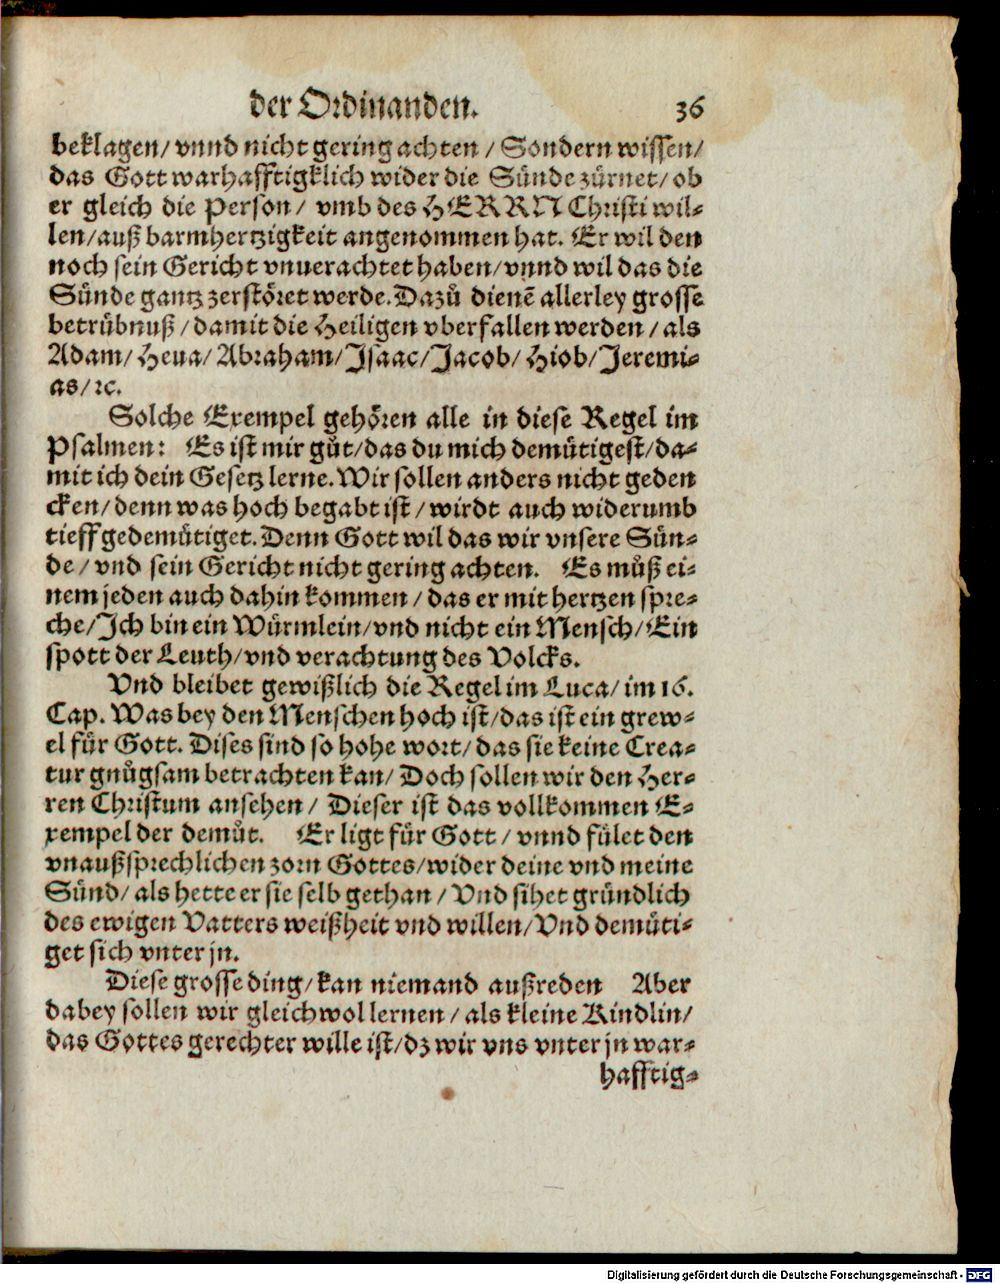 der Ordinanden. 36
beklagen/ vnnd nicht gering achten / Sondern wissen/
das Gott warhafftigklich wider die Sünde zürnet/ ob
er gleich die Person/ vmb des HERRN Christi wil⸗
len/ auß barmhertzigkeit angenommen hat. Er wil den
noch sein Gericht vnuerachtet haben/ vnnd wil das die
Sünde gantz zerstöret werde. Dazů dienẽ allerley grosse
betrübnuß / damit die Heiligen vberfallen werden / als
Adam/ Heua/ Abraham/ Isaac/ Jacob/ Hiob/ Jeremi⸗
as/ ꝛc.
Solche Exempel gehören alle in diese Regel im
Psalmen: Es ist mir gůt/ das du mich demütigest/ da⸗
mit ich dein Gesetz lerne. Wir sollen anders nicht geden
cken/ denn was hoch begabt ist / wirdt auch widerumb
tieff gedemütiget. Denn Gott wil das wir vnsere Sün⸗
de / vnd sein Gericht nicht gering achten. Es můß ei⸗
nem jeden auch dahin kommen / das er mit hertzen spre⸗
che/ Ich bin ein Würmlein/ vnd nicht ein Mensch/ Ein
spott der Leuth/ vnd verachtung des Volcks.
Vnd bleibet gewißlich die Regel im Luca/ im 16.
Cap. Was bey den Menschen hoch ist/ das ist ein grew⸗
el für Gott. Dises sind so hohe wort/ das sie keine Crea⸗
tur gnůgsam betrachten kan/ Doch sollen wir den Her⸗
ren Christum ansehen / Dieser ist das vollkommen E⸗
xempel der demůt. Er ligt für Gott / vnnd fület den
vnaußsprechlichen zorn Gottes/ wider deine vnd meine
Sünd/ als hette er sie selb gethan / Vnd sihet gründlich
des ewigen Vatters weißheit vnd willen/ Vnd demüti⸗
get sich vnter jn.
Diese grosse ding/ kan niemand außreden Aber
dabey sollen wir gleichwol lernen / als kleine Kindlin/
das Gottes gerechter wille ist/ dz wir vns vnter jn war⸗
hafftig⸗
Digitalisierung gefördert durch die Deutsche Forschungsgemeinschaft - DFG